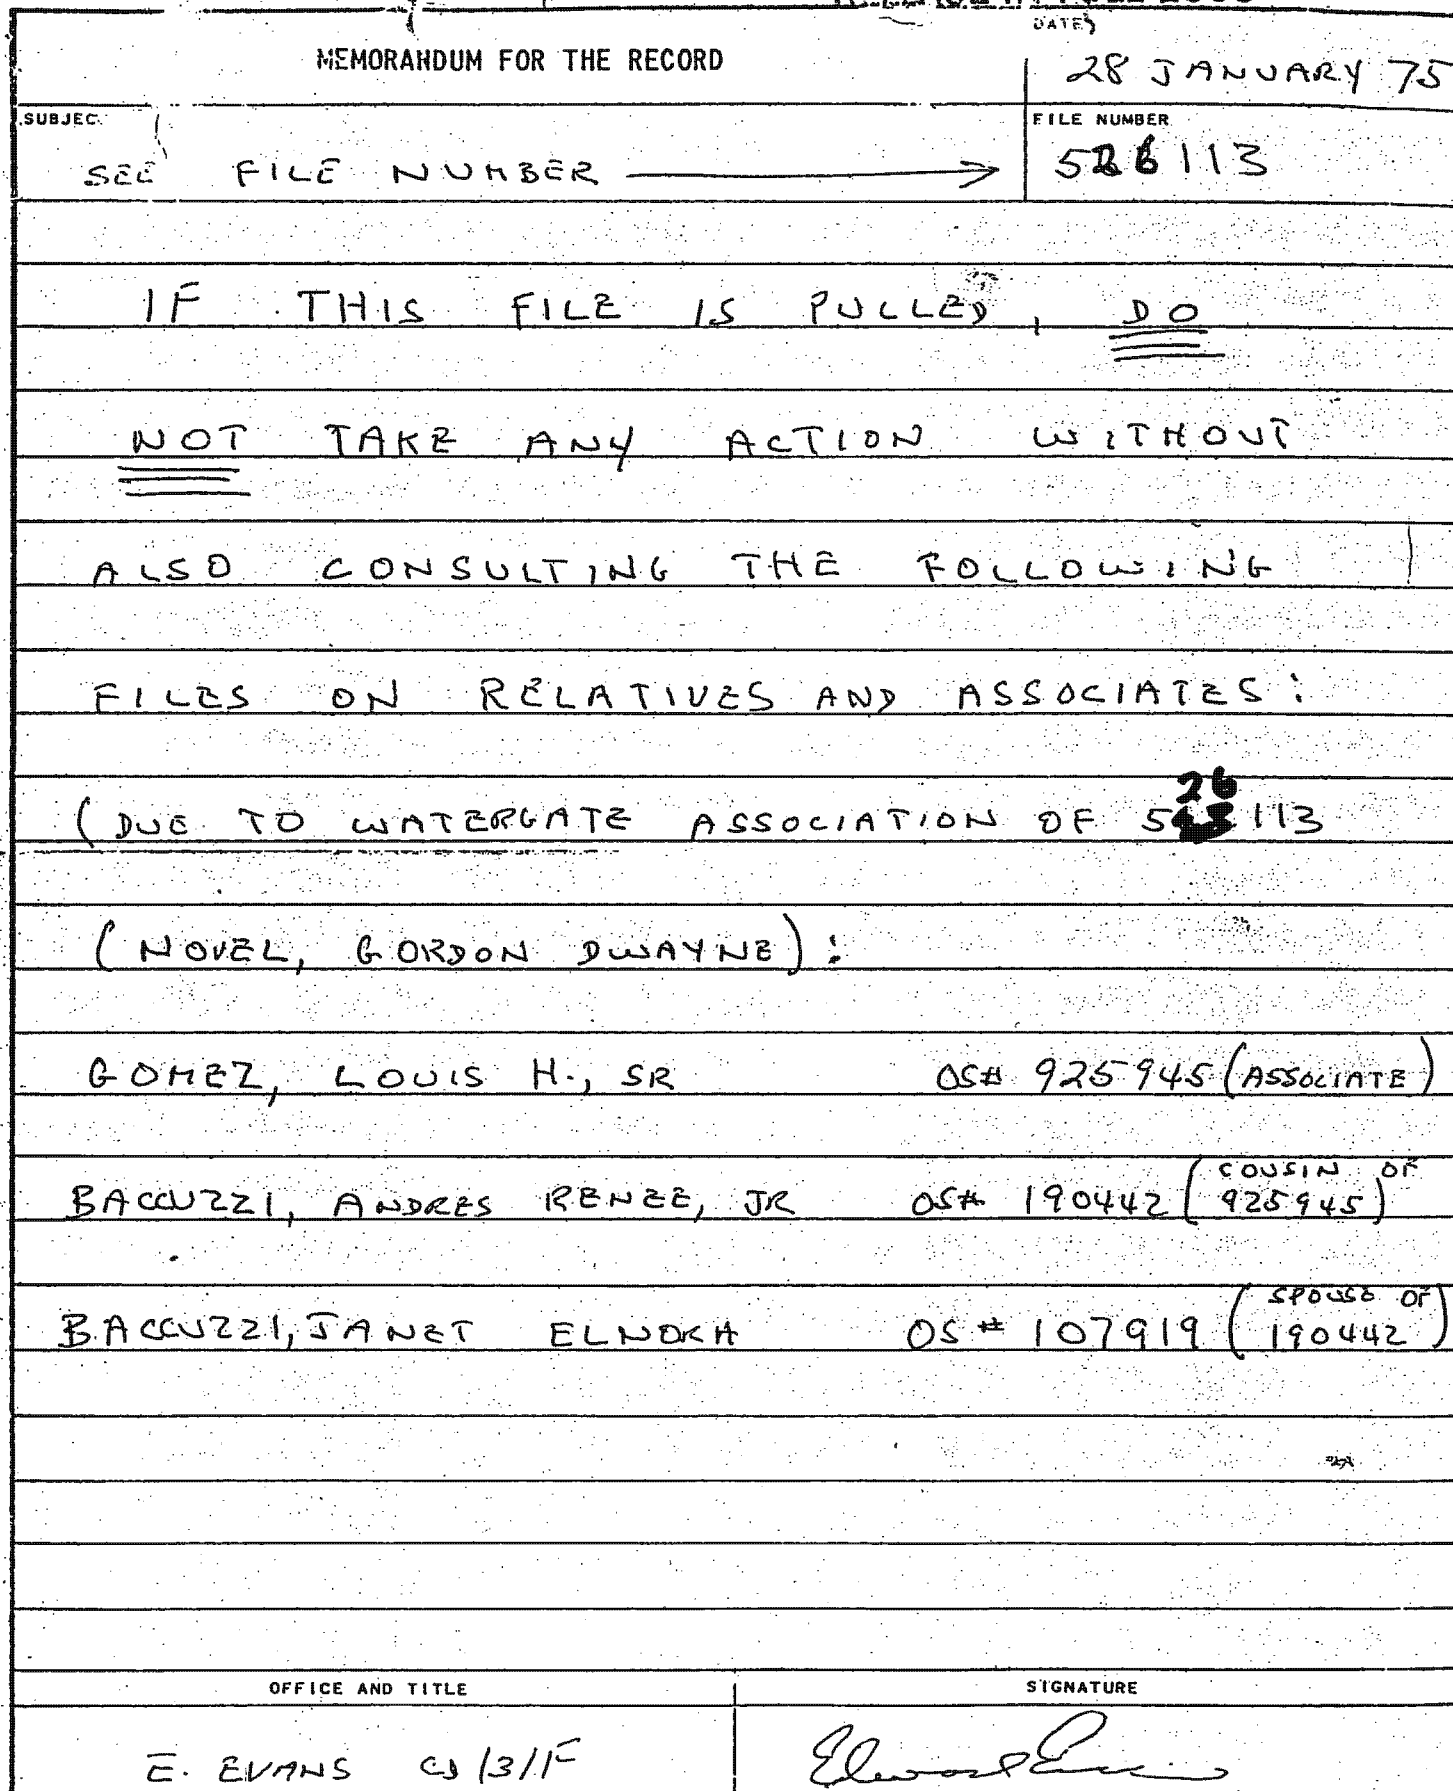 DATE
MEMORANDUM FOR THE RECORD
28 JANUARY 75
SUBJEC
FILE NUMBER
SEE FILE NUMBER
526113
IF THIS FILE IS PULLED, DO
NOT TAKE ANY ACTION WITHOUT
ALSO CONSULTING THE FOLLOWING
FILES ON RELATIVES AND ASSOCIATES:
(DUE TO WATERGATE ASSOCIATION OF 526113
(NOVEL, GORDON DWAYNE):
GOMEZ, LOUIS H., SR OS# 925945 (ASSOCIATE)
BACCUZZI, ANDRES RENEE, JR OS# 190442 (COUSIN OF 925945)
BACCUZZI, JANET OS# 107919 (SPOUSE OF 190442)
OFFICE AND TITLE
SIGNATURE
E. EVANS /3/1F